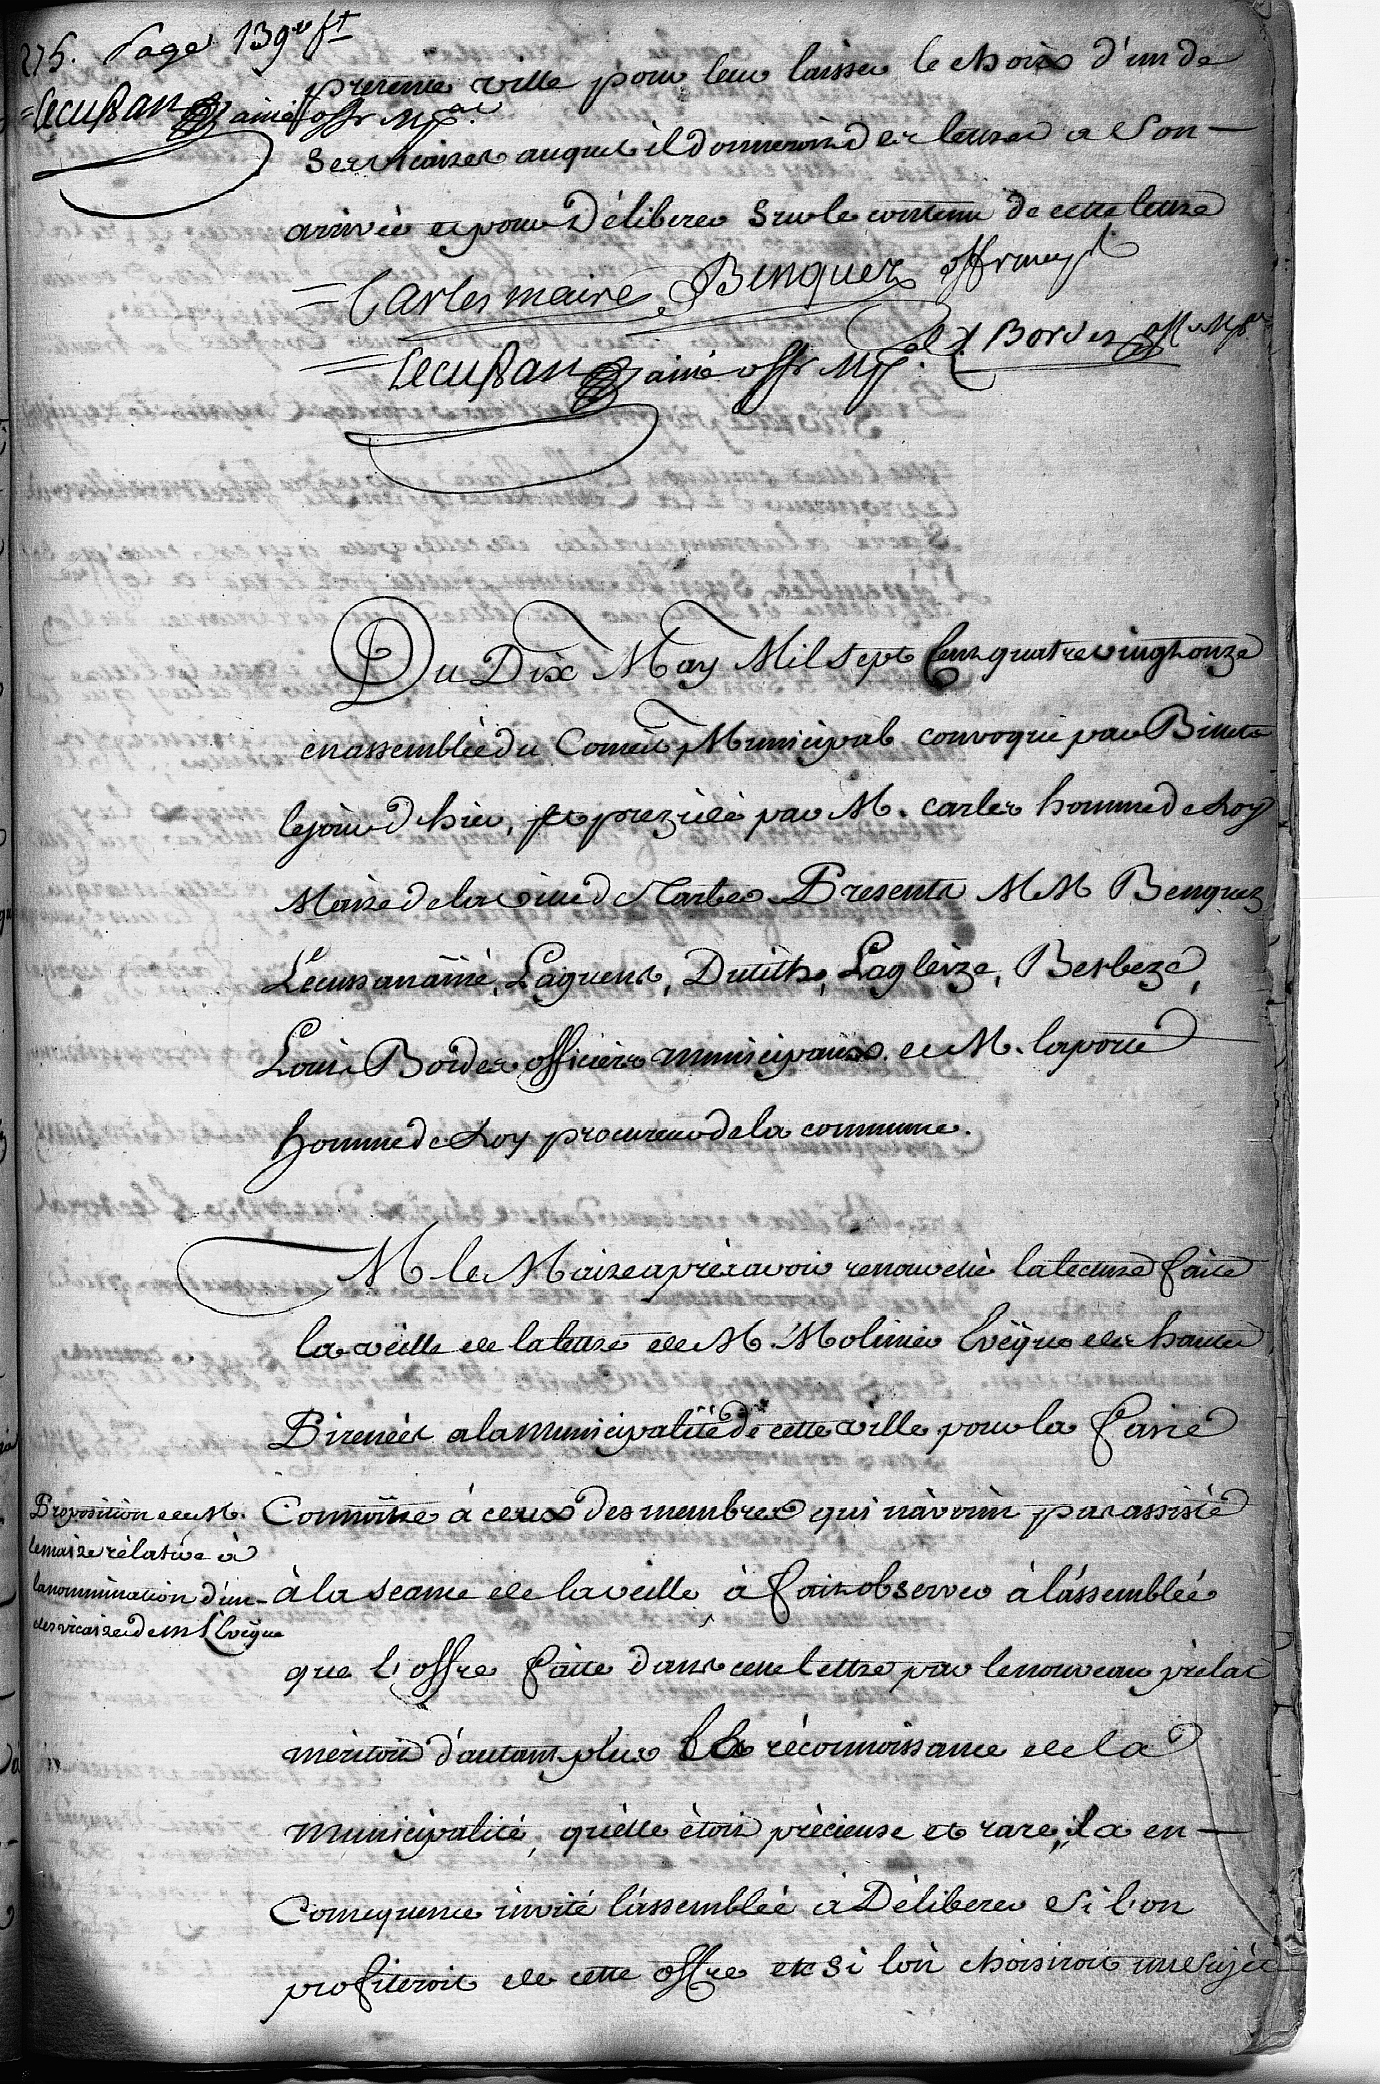 275. Page 139.e st
Lecussan ainé offr Mpal
presente ville pour leur laisser le choix d'un de
ses vicaires auquel il donneroit des lettres a son —
arrivée et pour Déliberer sur le contenu de cette lettre
= Carles maire Benquez offr mupl
= Lecussan ainé offr Mpl L.s Bordes off. Mpal
Du Dix May Mil sept Cent quatrevingt onze
en assemblée du Conseil Municipal convoqué par Billets
le jour d'hier, et prezidé par M. Carles homme de Loy
Maire de la ville de Tarbes Presents MM Benquez
Lecussan ainé, Laguens, Dutilh, Lagleize, Berbezé,
Louis Bordes officiers municipaux et M. laporte
homme de Loy procureur de la commune.
M le Maire après avoir renouvellé la lecture faite
la veille de la lettre de M. Molinier Evêque des hautes
Pirenées a la municipalité de cette ville pour la faire
Proposition de M.
le maire rélative à
la nommination d'un
des vicaires de M l'Evêque
Connoitre à ceux des membres qui n'avoint pas assisté
à la seance de la veille à fait observer à l'assemblée
que l'offre faite dans cette lettre par le nouveau prélat
meritoit d'autant plus la réconnoissance de la
municipalité, qu'elle étoit précieuse et rare, il a en —
Consequence invité l'assemblée à Déliberer si l'on
profiteroit de cette offre et si l'on choisiroit un sujet